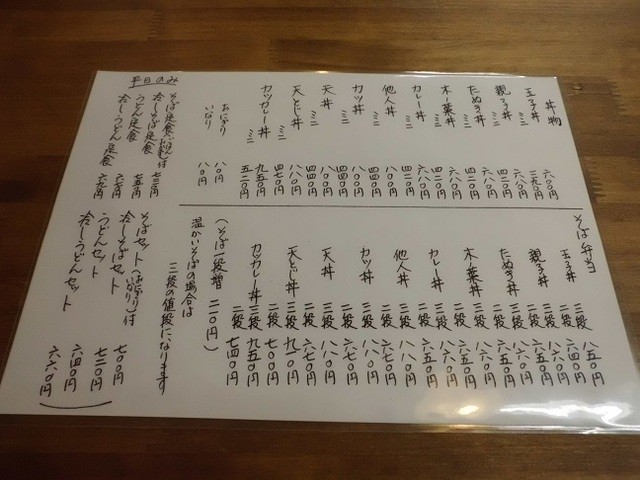 丼物
玉子丼 六〇〇円
ミニ 三九〇円
親子丼 六八〇円
ミニ 四二〇円
たぬき丼 六八〇円
ミニ 四二〇円
木ノ葉丼 六八〇円
ミニ 四二〇円
カレー丼 六八〇円
ミニ 四二〇円
他人丼 八〇〇円
ミニ 四四〇円
カツ丼 八〇〇円
ミニ 四四〇円
天丼 八〇〇円
ミニ 四四〇円
天とじ丼 八八〇円
ミニ 四七〇円
カツカレー丼 九五〇円
ミニ 五二〇円
おにぎり 八〇円
いなり 八〇円
平日のみ
そば定食(ごはん)付 七三〇円
冷しそば定食 七五〇円
うどん定食 六七〇円
冷しうどん定食 六九〇円
そば弁当
玉子丼 三段 八五〇円
二段 六四〇円
親子丼 三段 八六〇円
二段 六五〇円
たぬき丼 三段 八六〇円
二段 六五〇円
木ノ葉丼 三段 八六〇円
二段 六五〇円
カレー丼 三段 八六〇円
二段 六五〇円
他人丼 三段 八八〇円
二段 六七〇円
カツ丼 三段 八八〇円
二段 六七〇円
天丼 三段 八八〇円
二段 六七〇円
天とじ丼 三段 九一〇円
二段 七〇〇円
カツカレー丼 三段 九五〇円
二段 七四〇円
(そば一段増 二一〇円)
温かいそばの場合は
三段の値段になります
そばセット(おにぎり いなり)付 七〇〇円
冷しそばセット 七二〇円
うどんセット 六四〇円
冷しうどんセット 六六〇円